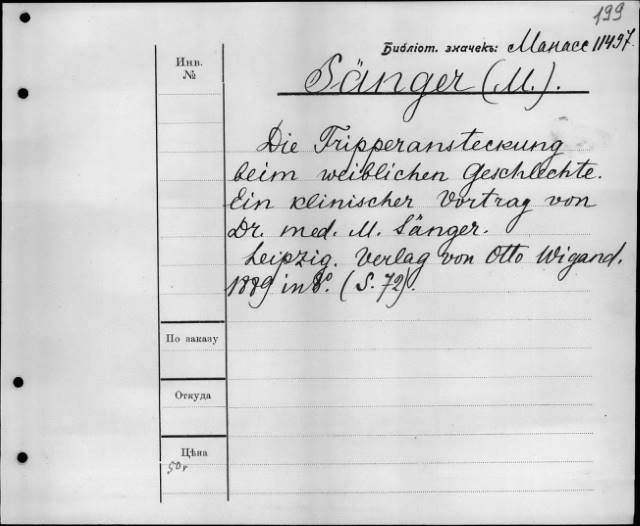 199
Библіот. значекъ: Манасс 11497.
Инв. №
Sänger (M.).
Die Tripperansteckung
beim weiblichen Geschlechte.
Ein klinischer Vortrag von
Dr. med. M. Sänger.
Leipzig. Verlag von Otto Wigand.
1889 in 8°. (S. 72).
По заказу
Откуда
Цѣна
50